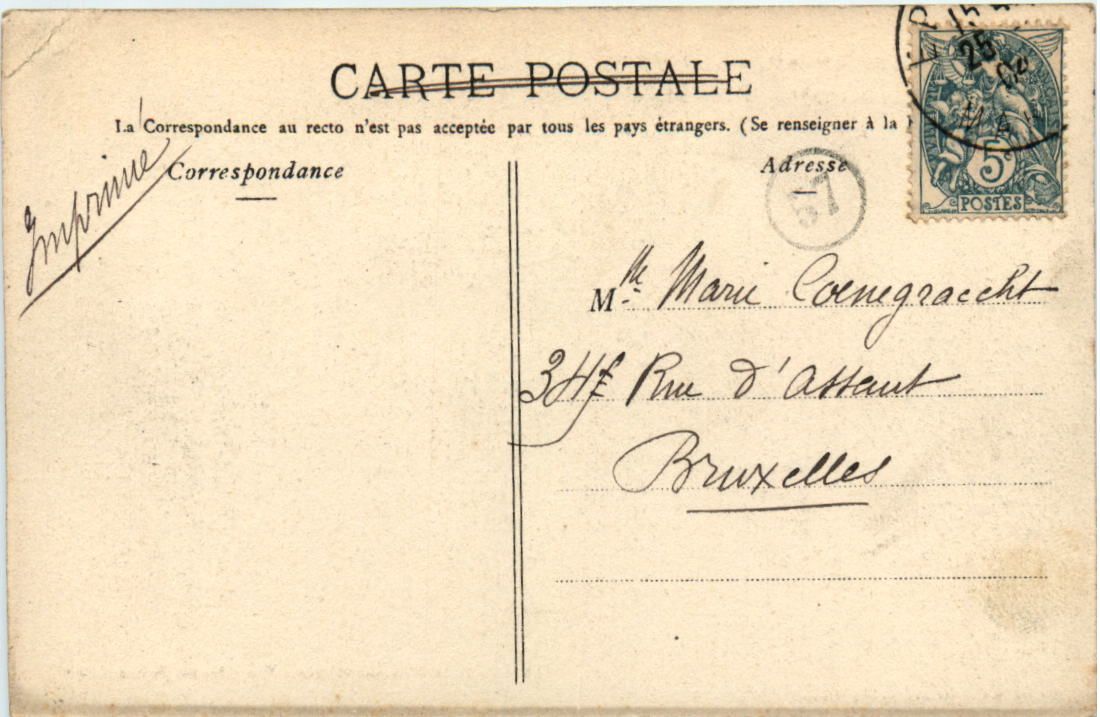 CARTE POSTALE
La Correspondance au recto n'est pas acceptée par tous les pays étrangers. (Se renseigner à la
Correspondance
Adresse
Imprimé
57
5c
POSTES
25
Mlle Marie Coenegracht
34 Rue d'Assaut
Bruxelles